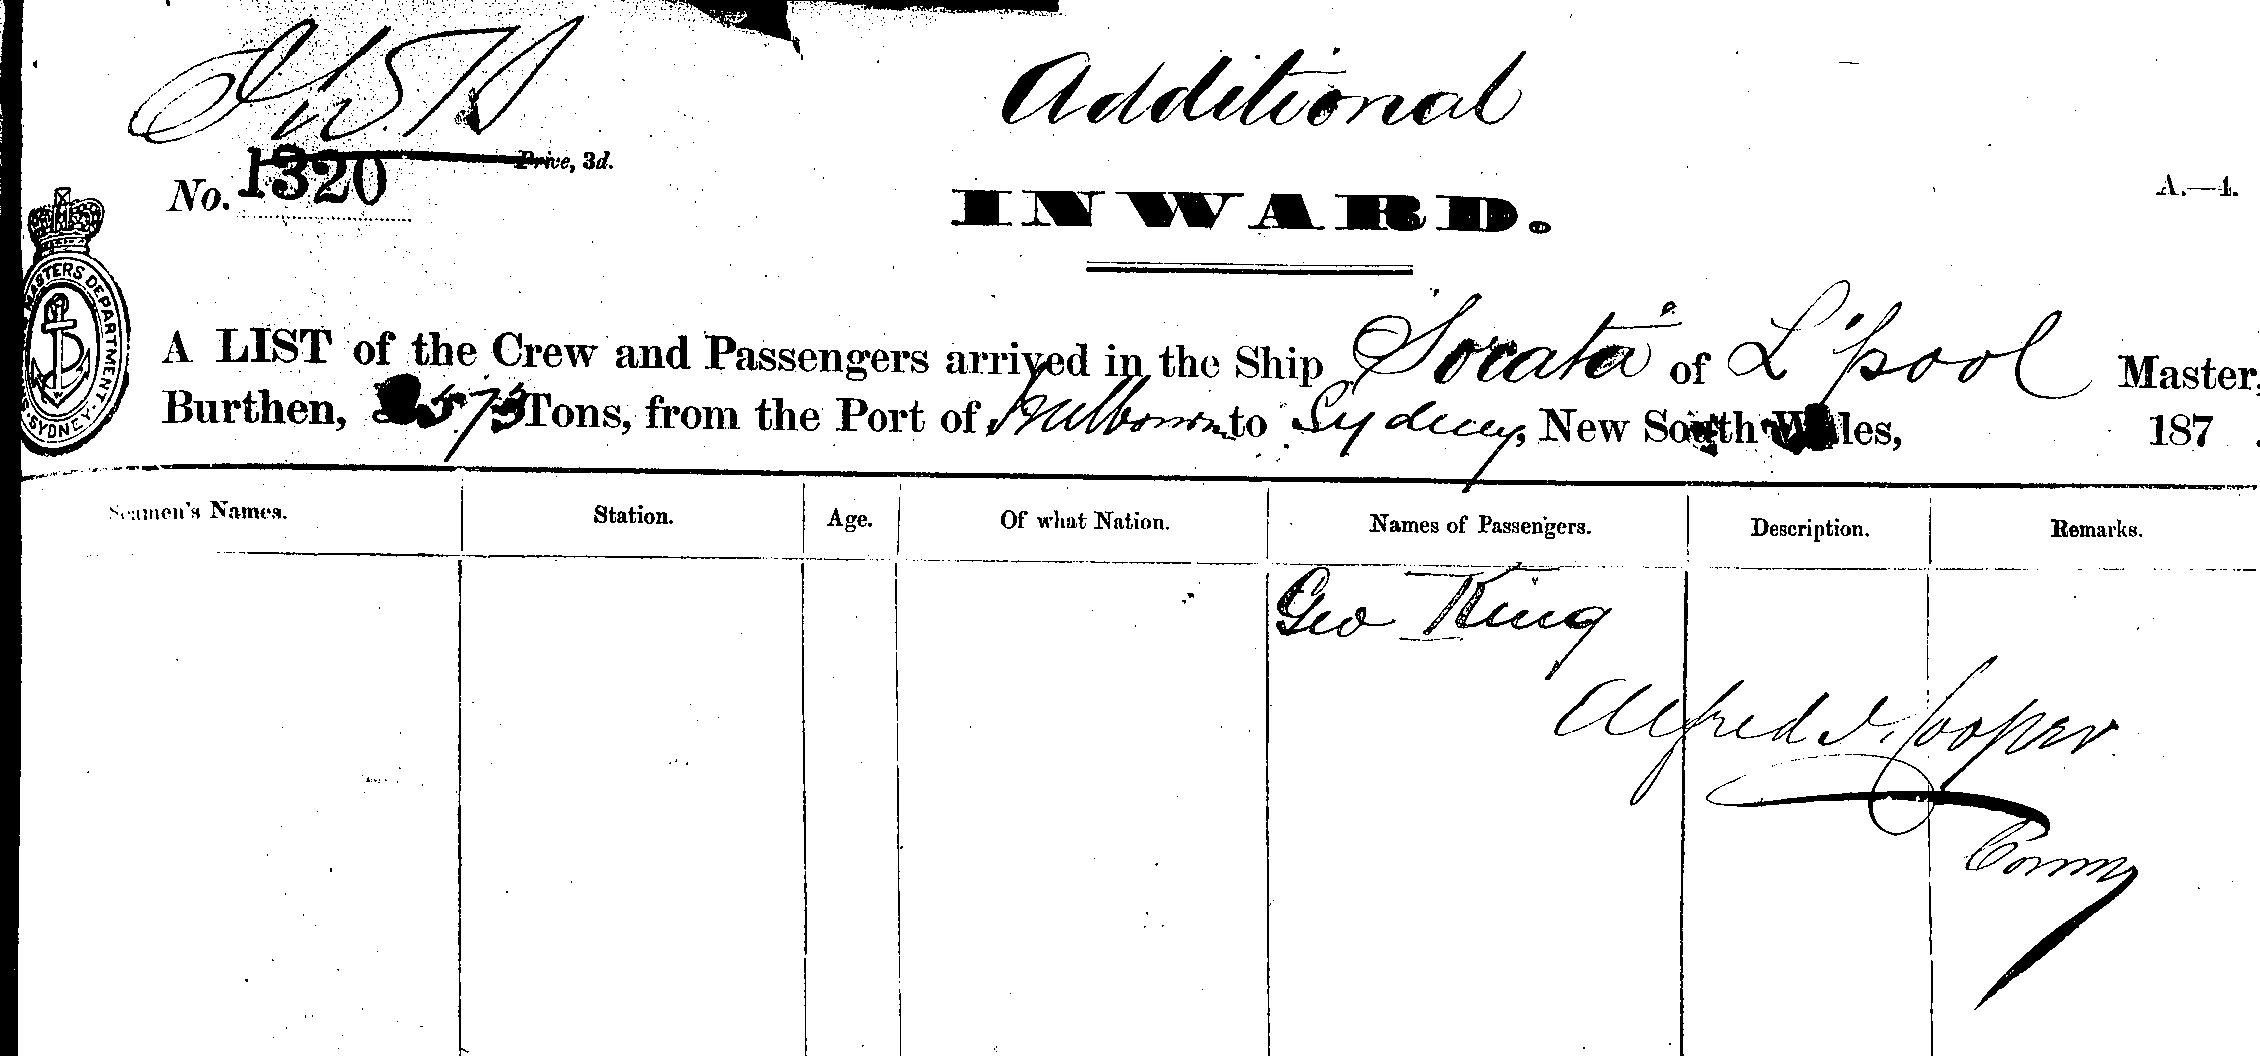 No. 1320
Price, 3d.
Additional
INWARD.
A.—4.
MASTERS DEPARTMENT. SYDNEY
A LIST of the Crew and Passengers arrived in the Ship "Sorata" of L'pool Master,
Burthen, 2573 Tons, from the Port of Melbourne to Sydney, New South Wales, 187 .
Seamen's Names. Station. Age. Of what Nation. Names of Passengers. Description. Remarks.
Geo King
Alfred J. Cooper
Comm